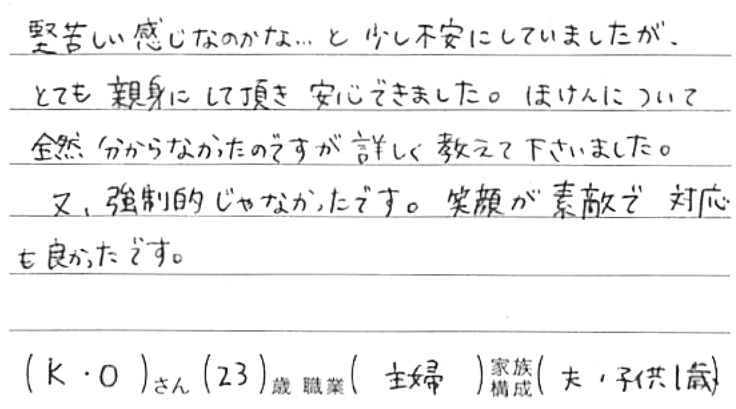 堅苦しい感じなのかな…と少し不安にしていましたが、
とても親身にして頂き安心できました。ほけんについて
全然分からなかったのですが詳しく教えて下さいました。
又、強制的じゃなかったです。笑顔が素敵で対応
も良かったです。
(K・O)さん(23)歳 職業(主婦)家族構成(夫・子供1歳)